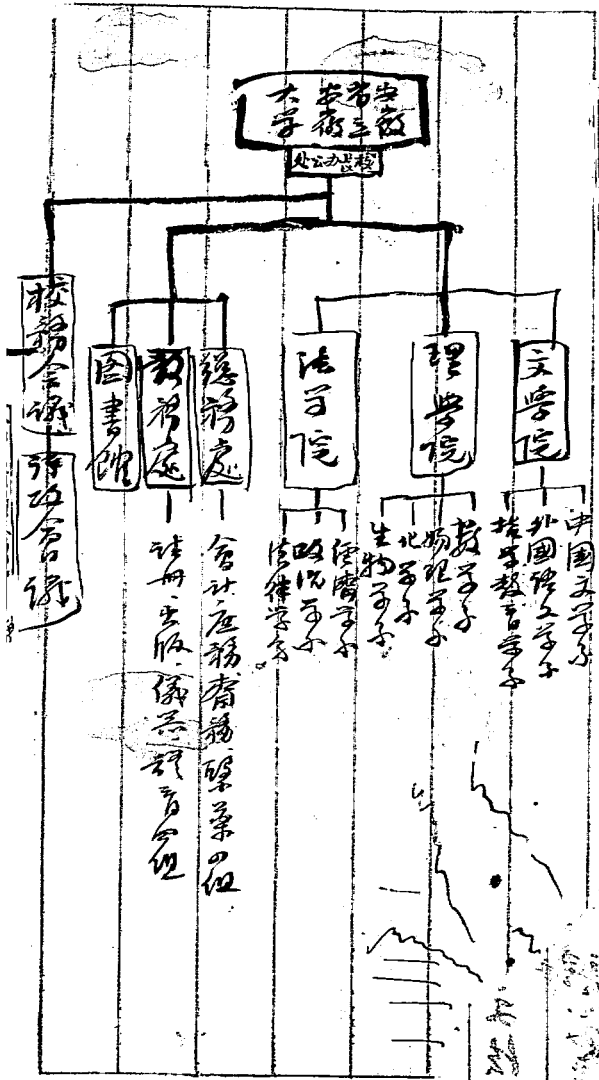 安徽省立安徽大学
校長办公处
文學院
中国文学系
外國語文学系
哲学教育学系
理學院
数学系
物理学系
化学系
生物学系
法学院
經濟学系
政治学系
法律学系
總務處
會計庶務齋務醫藥四組
教務處
註册、出版、儀器、體育四組
图書館
校務会議
行政會議